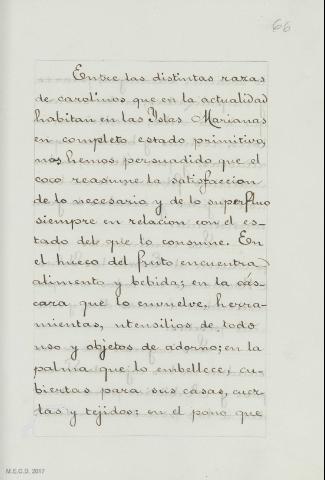 66
Entre las distintas razas
de carolinos que en la actualidad
habitan en las Yslas Marianas
en completo estado primitivo,
nos hemos persuadido que el
coco reasume la satisfaccion
de lo necesario y de lo superfluo
siempre en relacion con el es-
tado del que lo consume. En
el hueco del fruto encuentra
alimento y bebida; en la cás-
cara que lo envuelve, herra-
mientas, utensilios de todo
uso y objetos de adorno; en la
palma que lo embellece, cu-
biertas para sus casas, cuer-
das y tejidos; en el pono que
M.E.C.D. 2017